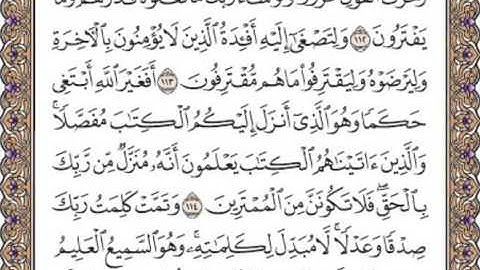 زُخْرُفَ ٱلْقَوْلِ غُرُورًا وَلَوْ شَآءَ رَبُّكَ مَا فَعَلُوهُ فَذَرْهُمْ وَمَا
يَفْتَرُونَ ١١٢ وَلِتَصْغَىٰٓ إِلَيْهِ أَفْـِٔدَةُ ٱلَّذِينَ لَا يُؤْمِنُونَ بِٱلْءَاخِرَةِ
وَلِيَرْضَوْهُ وَلِيَقْتَرِفُوا۟ مَا هُم مُّقْتَرِفُونَ ١١٣ أَفَغَيْرَ ٱللَّهِ أَبْتَغِى
حَكَمًا وَهُوَ ٱلَّذِىٓ أَنزَلَ إِلَيْكُمُ ٱلْكِتَٰبَ مُفَصَّلًا ۚ
وَٱلَّذِينَ ءَاتَيْنَٰهُمُ ٱلْكِتَٰبَ يَعْلَمُونَ أَنَّهُۥ مُنَزَّلٌ مِّن رَّبِّكَ
بِٱلْحَقِّ ۖ فَلَا تَكُونَنَّ مِنَ ٱلْمُمْتَرِينَ ١١٤ وَتَمَّتْ كَلِمَتُ رَبِّكَ
صِدْقًا وَعَدْلًا ۚ لَّا مُبَدِّلَ لِكَلِمَٰتِهِۦ ۚ وَهُوَ ٱلسَّمِيعُ ٱلْعَلِيمُ